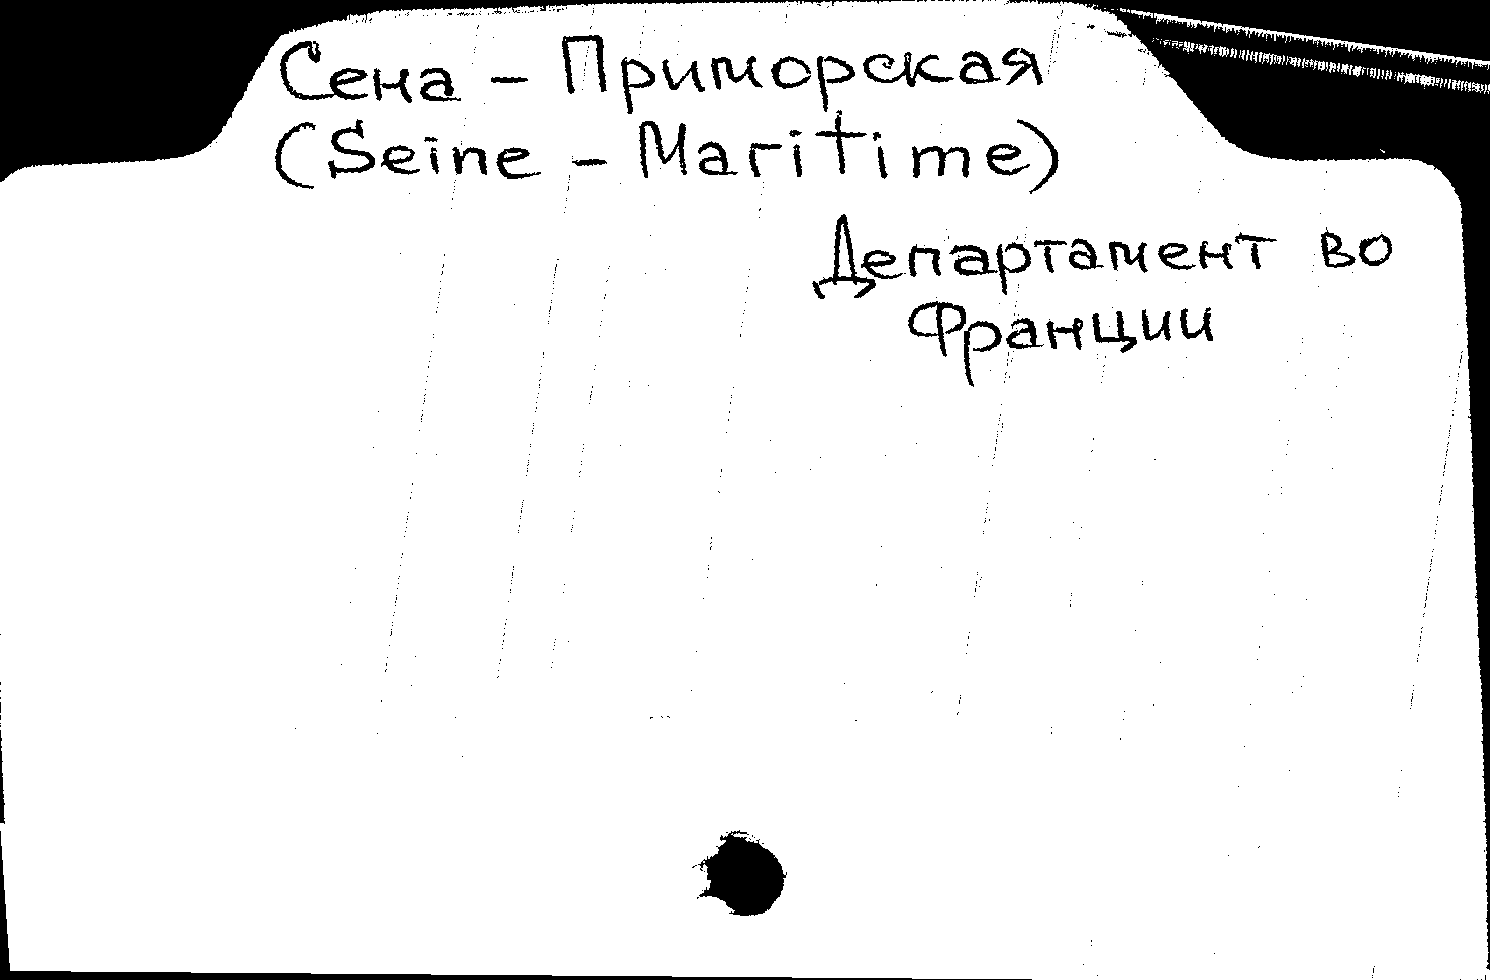 Сена - Приморская
(Seine - Maritime)
Департамент во
Франции